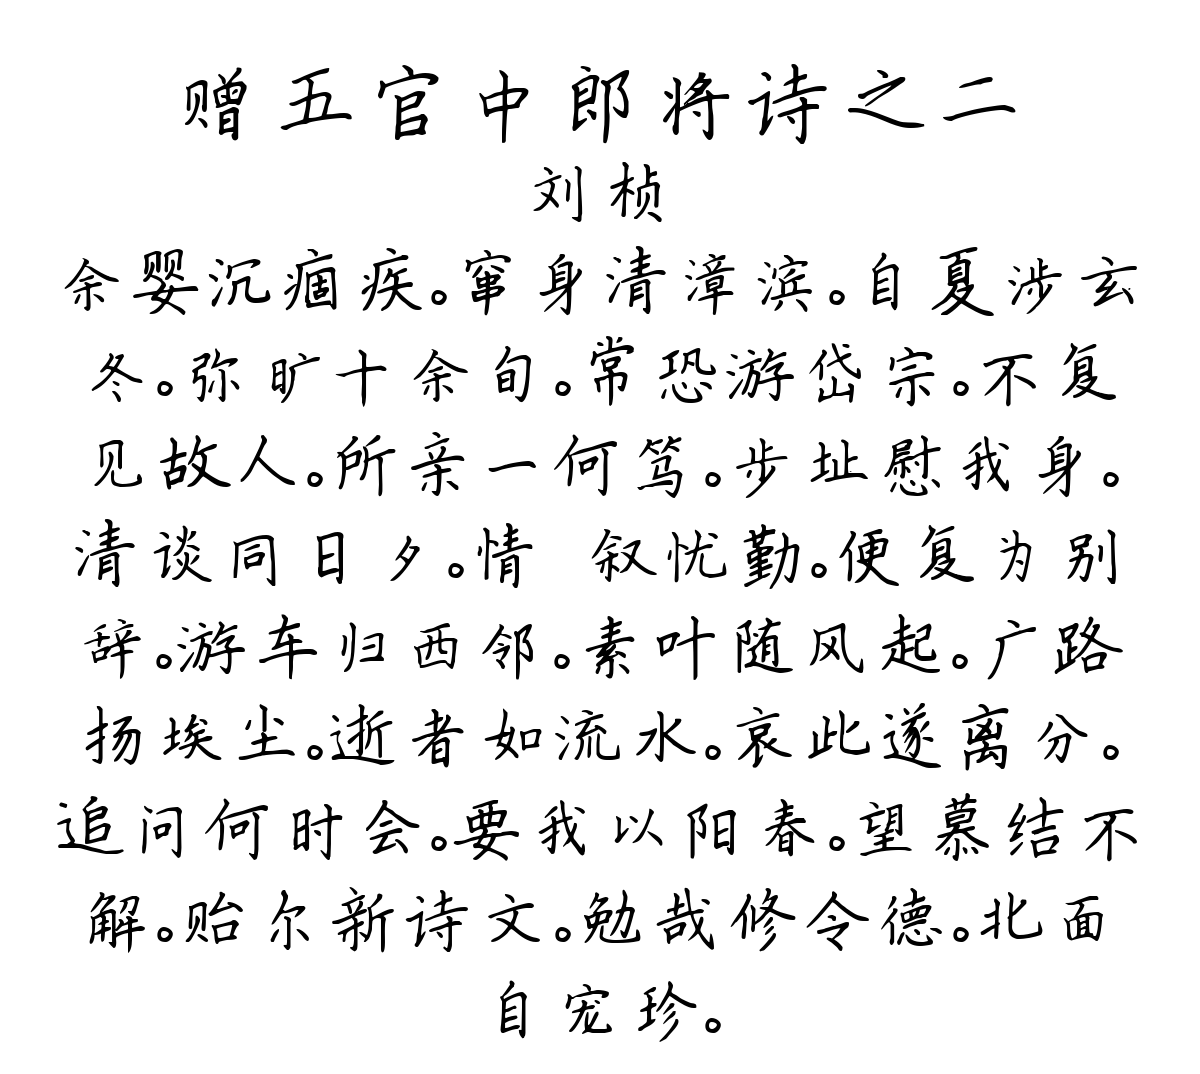 赠五官中郎将诗之二
刘桢
余婴沉痼疾。窜身清漳滨。自夏涉玄
冬。弥旷十余旬。常恐游岱宗。不复
见故人。所亲一何笃。步址慰我身。
清谈同日夕。情 叙忧勤。便复为别
辞。游车归西邻。素叶随风起。广路
扬埃尘。逝者如流水。哀此遂离分。
追问何时会。要我以阳春。望慕结不
解。贻尔新诗文。勉哉修令德。北面
自宠珍。